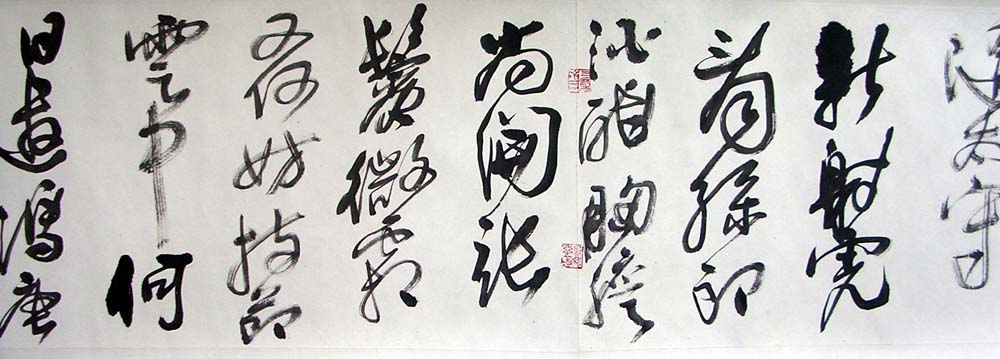 随太守
親射虎
看孫郎
酒酣胸膽
尚開張
鬢微霜
又何妨持節
雲中何
日遣馮唐